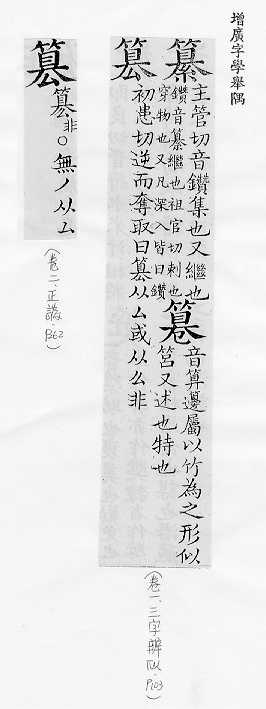 增廣字學舉隅
纂 主管切音鑽集也又繼也
鑽音纂繼也祖官切刺也
穿物也又凡深入皆曰鑽
篹 音算邊屬以竹為之形似
筥又述也特也
篡 初患切逆而奪取曰篡从厶或从么非
(卷一、三字辨似、P103)
篡 篡非○無丿从厶
(卷二、正譌、P362)